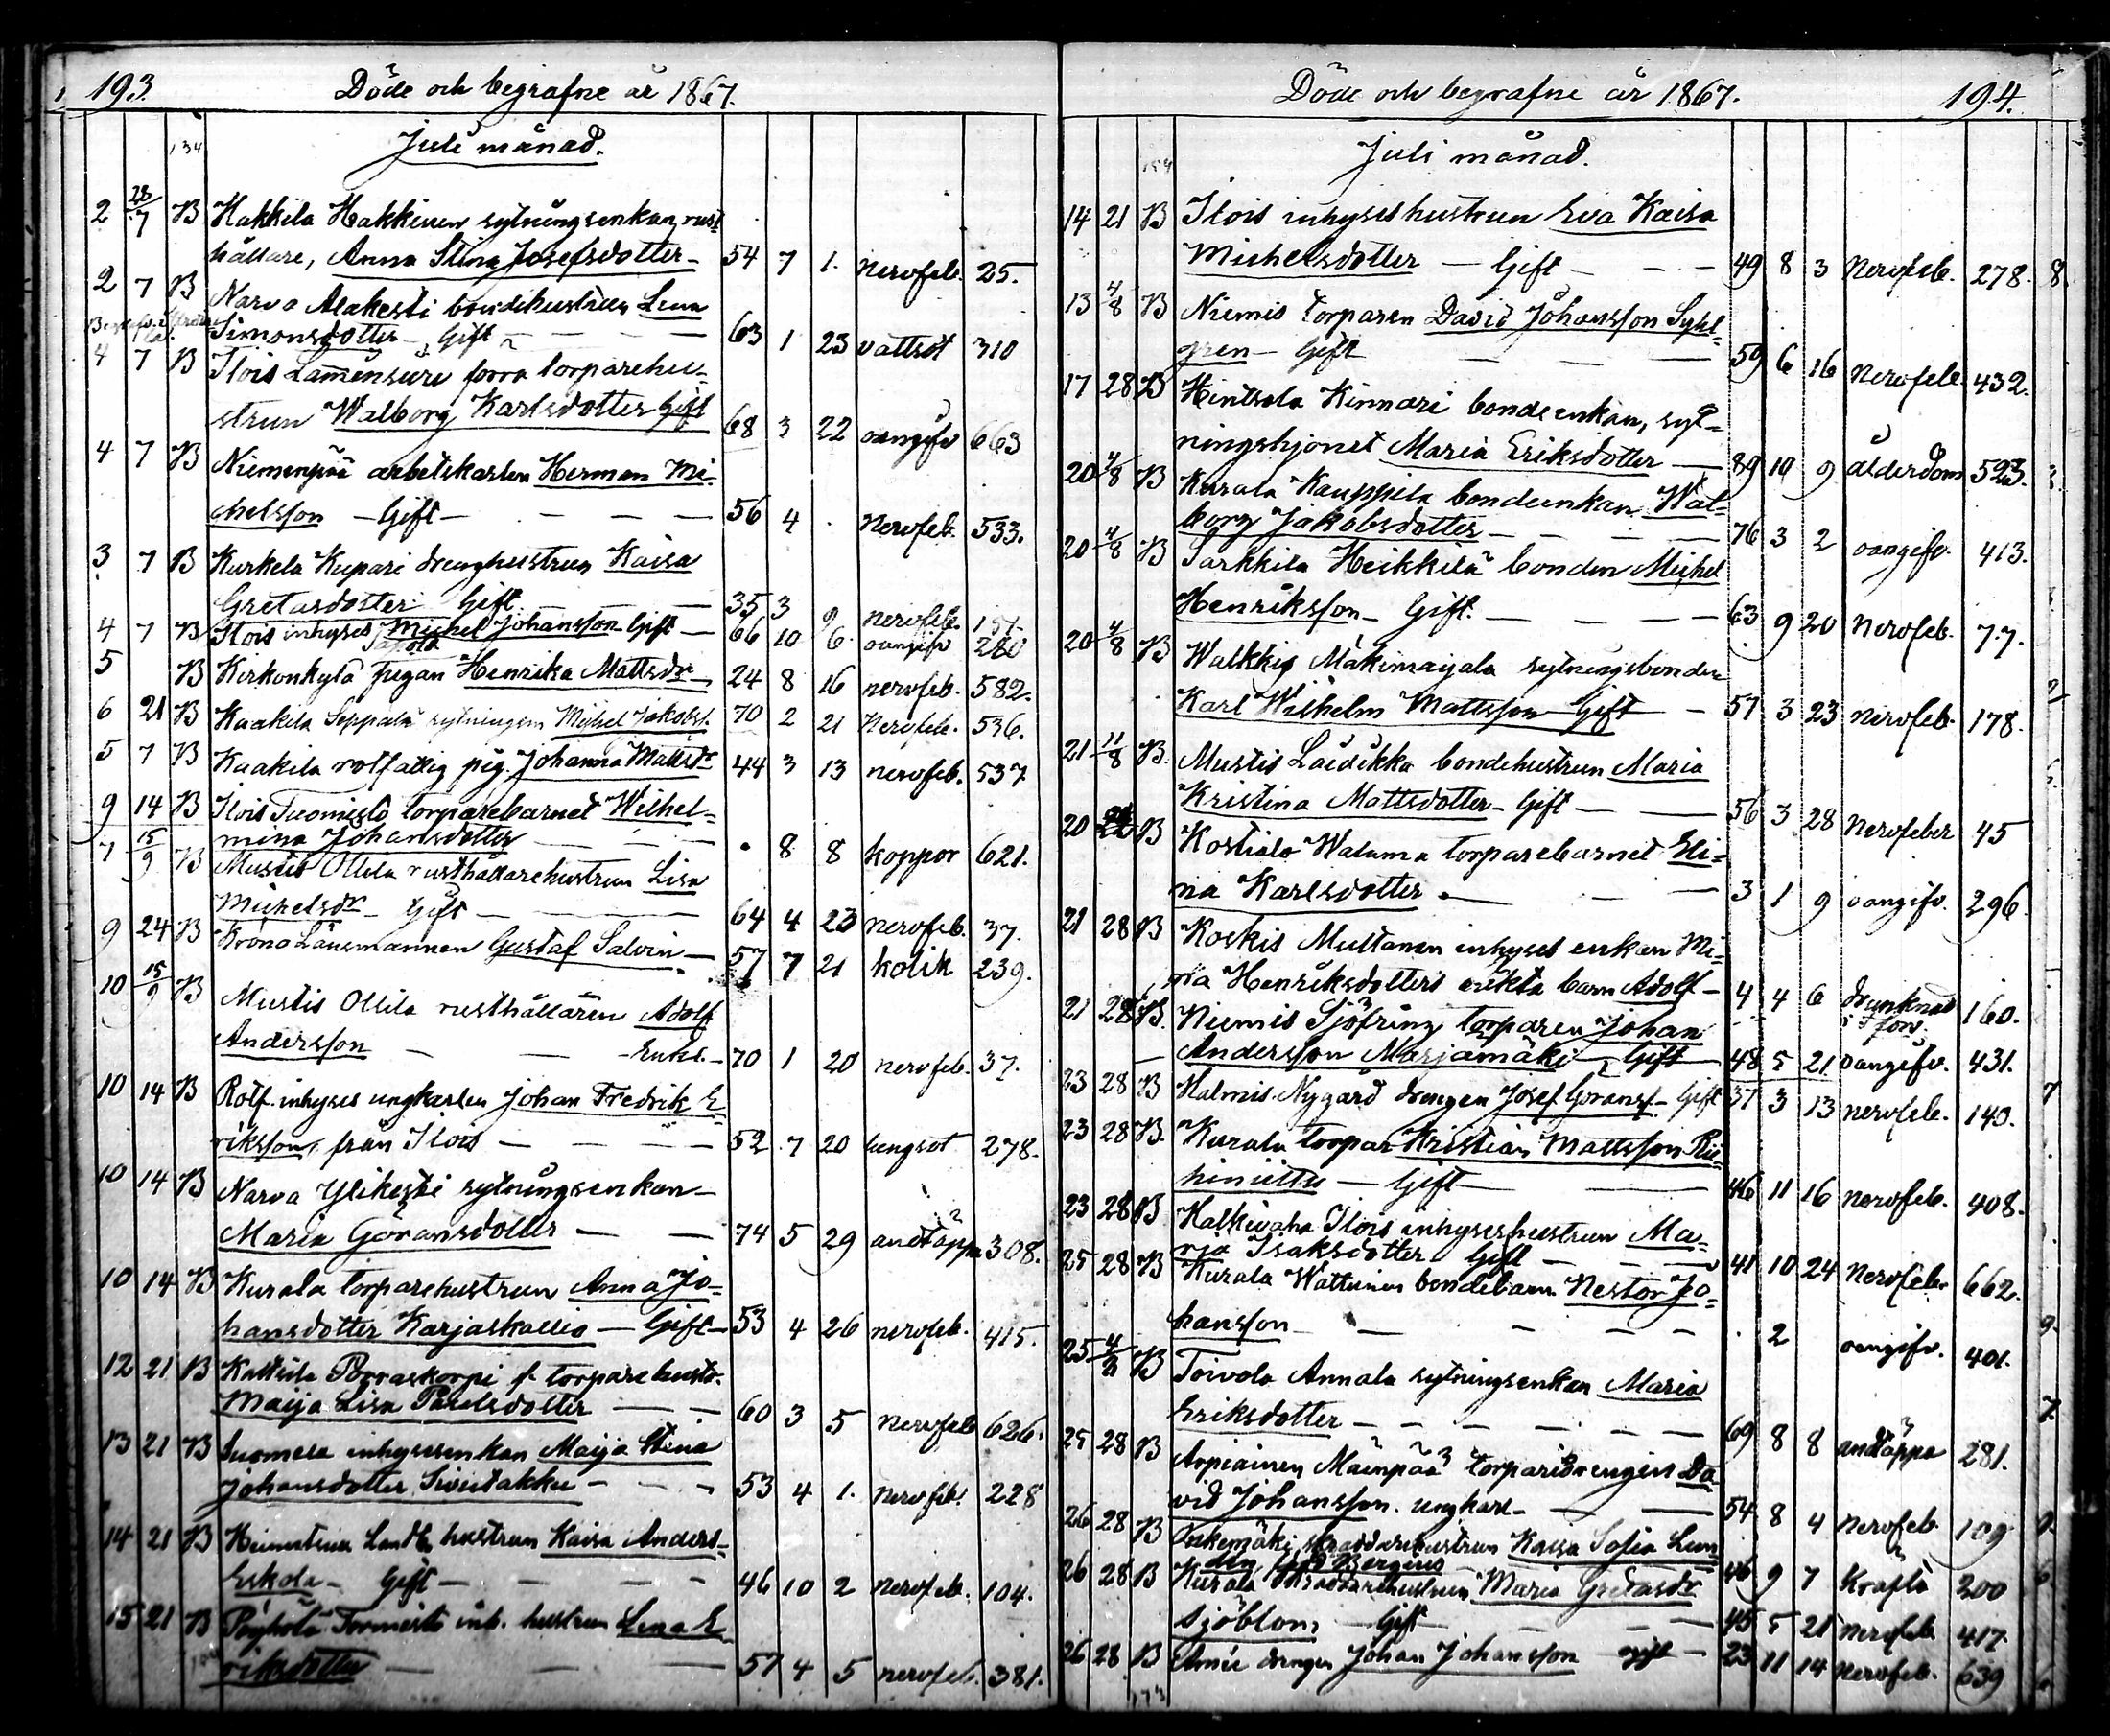 193.
Döde och begrafne år 1867.
134
Juli månad.
2 28/7 B Hakkila Hakkinen sytningsenkan, rust=
hållare, Anna Stina Josefsdotter - 54 7 1. nervfeb. 25.
2 7 B Narva Alakesti bondehustrun Lena
Simonsdotter - Gift - 63 1 23 vattsot 310
4 7 B Ilois förra torparehu=
strun Walborg Karlsdotter Gift 68 3 22 oangifv 663
4 7 B Niemenpää arbetskarlen Herman Mi=
chelsson - Gift - 56 4 . Nervfeb. 533.
3 7 B Kurkela Kupari drenghustrun Kaisa
Gretasdotter Gift - 35 3 9 nervfeb. 151.
4 7 B Ilois inhyses Michel Johansson - Gift - 66 10 6. oangifv 280
5 B Kirkonkylä pigan Henrika Mattsdr 24 8 16 nervfeb. 582.
6 21 B Kaakila Seppälä sytningsm Michel Jakobss. 70 2 21 Nervfeb. 536.
5 7 B Kaakila rotfattig pig. Johanna Mattsdr 44 3 13 nervfeb. 537
9 14 B Ilois Tuomisto torparebarnet Wilhel=
mina Johansdotter - . 8 8 koppor 621.
7 15/9 B Mustis Ollila rusthållarehustrun Lisa
Michelsdr - Gift - 64 4 23 nervfeb. 37.
9 24 B Krono Länsmannen Gustaf Salvin - 57 7 21 kolik 239.
10 15/9 B Mustis Ollila rusthållaren Adolf
Andersson - Enkl. - 70 1 20 nervfeb. 37.
10 14 B Rotf. inhyses ungkarlen Johan Fredrik E=
riksson, från Ilois - 52 7 20 lungsot 278.
10 14 B Narva Ylikesti sytningsenkan -
Maria Göransdotter - 74 5 29 andtäppa 308.
10 14 B Kurala torparehustrun Anna Jo=
hansdotter Karjaskallio - Gift - 53 4 26 nervfeb. 415.
12 21 B Kattila Porraskorpi f. torparehustr.
Maija Lisa Pavelsdotter - 60 3 5 nervfeb 626.
13 21 B Suomela inhysesenkan Maija Stina
Johansdotter - 53 4 1. nervfeb. 228
14 21 B hustrun Kaisa Anders=
Eskola - Gift - 46 10 2 nervfeb. 104.
15 21 B Pöyhölä inh. hustrun Lena E=
riksdotter - 57 4 5 nervfeb. 381.
Döde och begrafne år 1867.
194.
Juli månad.
14 21 B Ilois inhyseshustrun Eva Kaisa
Michelsdotter - Gift - 49 8 3 Nervfeb. 278.
13 4/8 B Niemis torparen David Johansson Syhl=
gren - Gift 59 6 16 nervfeb. 432.
17 28 B Hintsala Kinnari bondeenkan, syt=
ningshjonet Maria Eriksdotter - 89 10 9 ålderdom 523.
20 4/8 B Kurala Kauppila bondeenkan Wal=
borg Jakobsdotter - 76 3 2 oangifv. 413.
20 4/8 B Sarkkila Heikkilä bonden Michel
Henriksson - Gift. - 63 9 20 Nervfeb. 77.
20 4/8 B Walkkis Mäkimaijala sytningsbonden
Karl Wilhelm Mattsson - Gift - 57 3 23 nervfeb. 178.
21 11/8 B. Mustis Laidikka bondehustrun Maria
Kristina Mattsdotter - Gift - 56 3 28 Nervfeber 45
20 B Kostiala Watama torparebarnet Eli=
na Karlsdotter. - 3 1 9 oangifv. 296.
21 28 B Koskis Multanen inhyses enkan Mi=
na Henriksdotters oäkta barn Adolf - 4 4 6 drunknad 160.
21 28 B. Niemis Sjöfring torparen Johan
Andersson Marjamäki - Gift - 48 5 21 oangifv. 431.
23 28 B Halmis. Nygård drengen Josef Göranss. - Gift 37 3 13 nervfeb. 140.
23 28 B. Kurala torpar Kristian Mattsson Rii=
hiniittu - Gift - 46 11 16 nervfeb. 408.
23 28 B Halkivaha Ilois inhyseshustrun Ma=
rja Isaksdotter Gift - 41 10 24 Nervfeber 662.
25 28 B Kurala Wattunen bondebarn Nestor Jo=
hansson - . 2 oangifv. 401.
25 4/8 B Toivola Annala sytningsenkan Maria
Eriksdotter - 69 8 8 andtäppa 281.
25 28 B Arpiainen Mäenpää torparedrengen Da=
vid Johansson. ungkarl - 54 8 4 nervfeb. 109
26 28 B skräddarehustrun Kaisa Sofia Lun=
din Bergius 46 9 7 kräfta 200
26 28 B Kurala skräddarehustrun Maria Gretasdr
Sjöblom - Gift - 45 5 21 nervfeb. 417.
26 28 B drengen Johan Johansson ogift - 23 11 14 nervfeb. 639